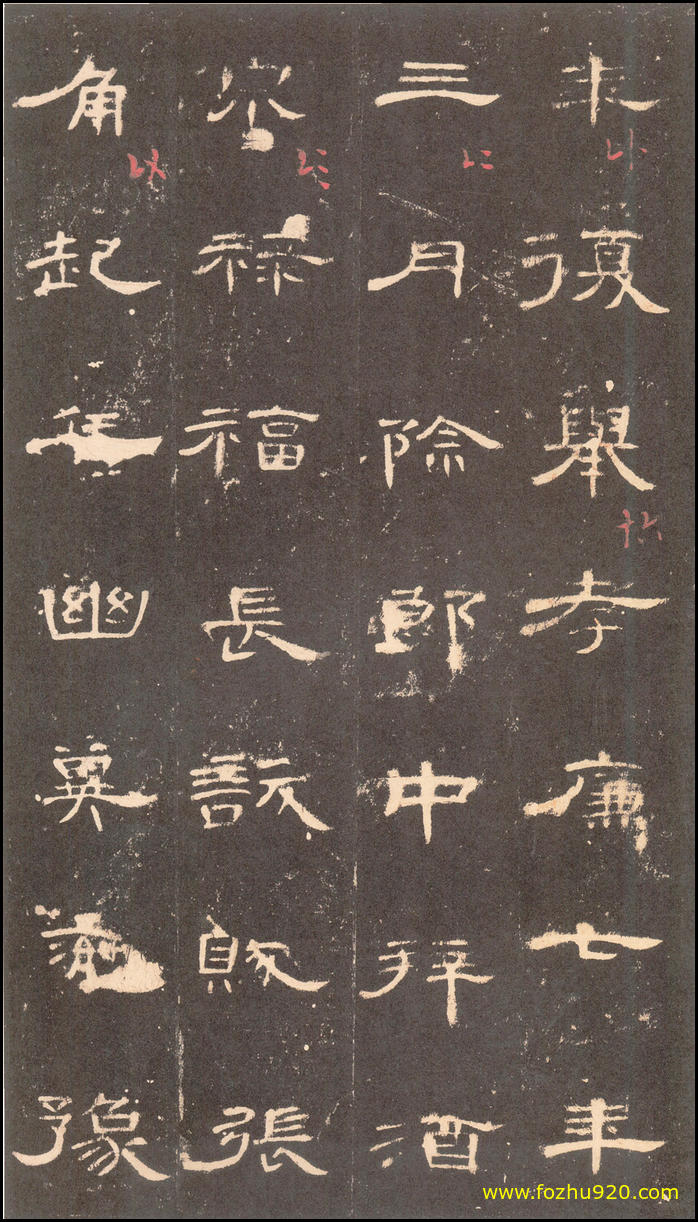 年復舉孝廉七年
三月除郎中拜酒
泉祿福長訞賊張
角起兵幽冀兖豫
www.fozhu920.com